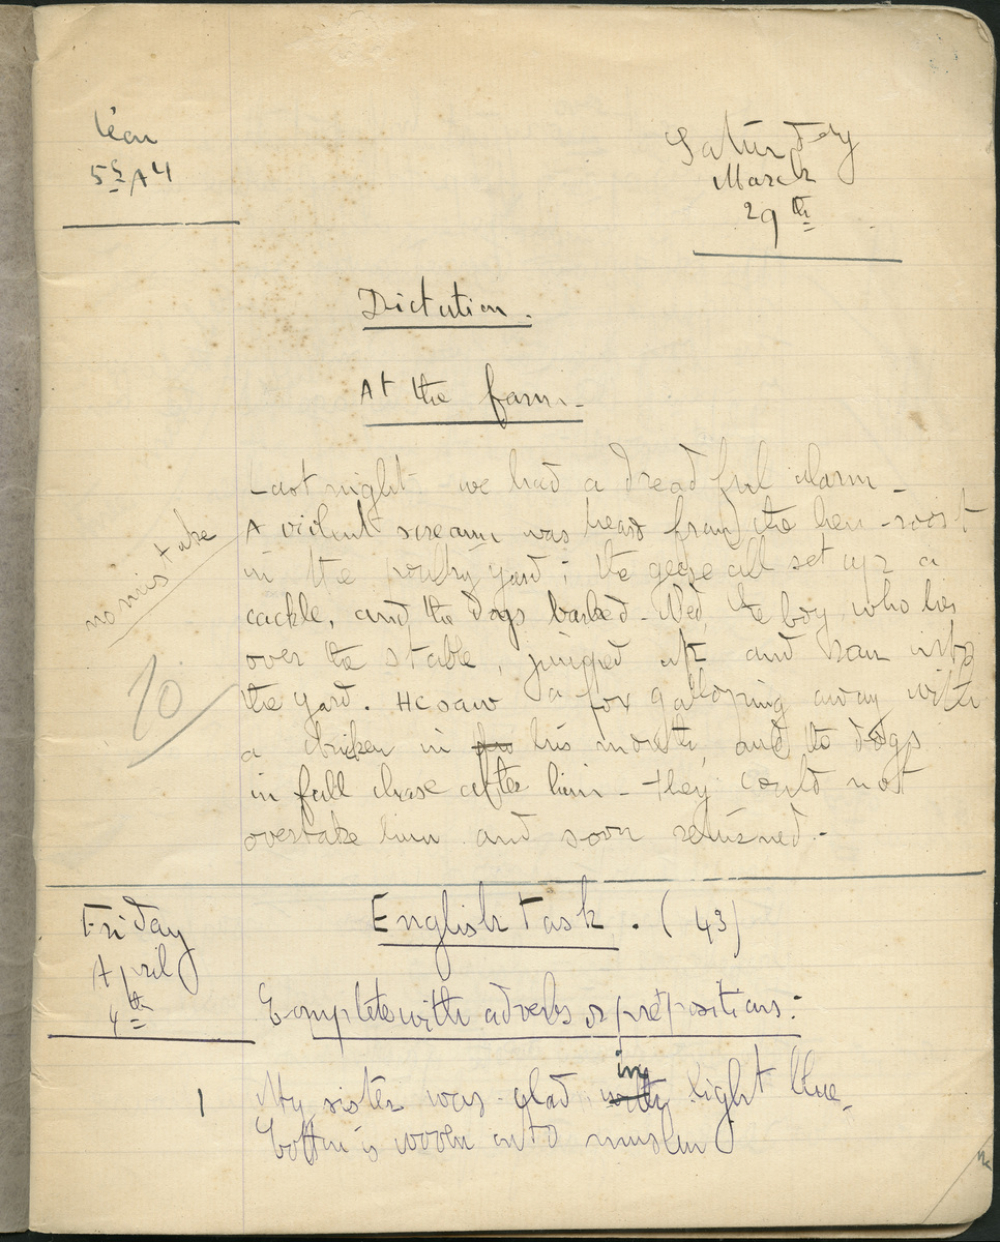 Léon
5e A4
Saturday
March
29th
Dictation.
At the farm.
Last night we had a dreadful alarm.
A violent scream was heard from the hen-roost
in the poultry yard; the geese all set up a
cackle, and the dogs barked. Ned, the boy who lies
over the stable, jumped up and ran into
the yard. He saw a fox galloping away with
a chicken in his mouth, and the dogs
in full chase after him. They could not
overtake him and soon returned.
no mistake
10
Friday
April
4th
English Task. (43)
Complete with adverbs or prepositions:
1 My sister was glad in light blue.
Cotton is woven into muslin